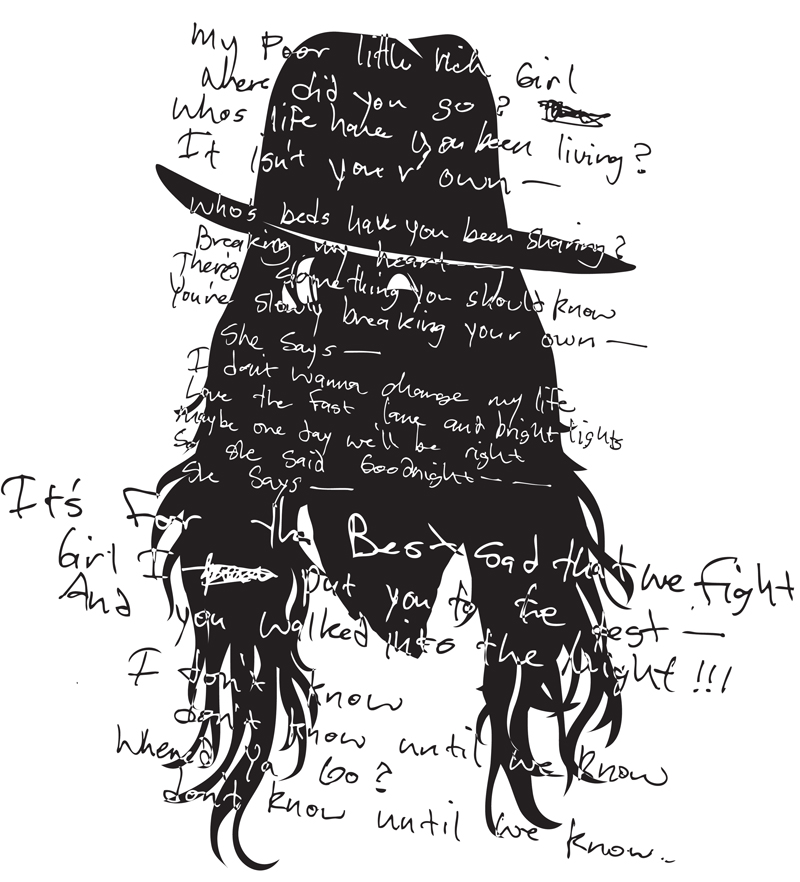 My Poor little rich Girl
Where did you go?
Whos life have you been living?
It isn't your own —
Who's beds have you been sharing?
Breaking my heart —
There's something you should know
You're slowly breaking your own —
She Says —
I don't wanna change my life
Love the fast lane and bright lights
maybe one day we'll be right
So she said Goodnight — —
She Says —
It's For the Best sad that we fight
Girl I put you to the test —
And you walked into the Night!!!
I don't know
don't know until we know
Where'd ya Go?
don't know until we know..